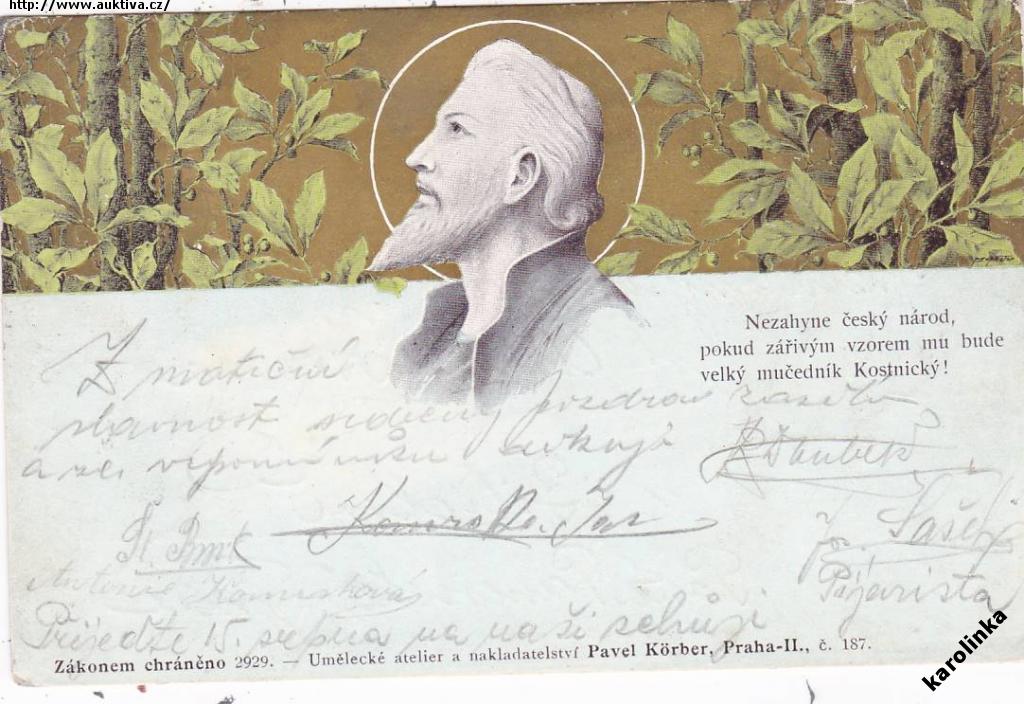 http://www.auktiva.cz/
Nezahyne český národ,
pokud zářivým vzorem mu bude
velký mučedník Kostnický!
Z matiční
slavnost srdečný pozdrav zasílá
a za vzpomínku děkuji
Antonie
Pijarista
Přijeďte 15. srpna na naši schůzi
Zákonem chráněno 2929. — Umělecké atelier a nakladatelství Pavel Körber, Praha-II., č. 187.
karolinka